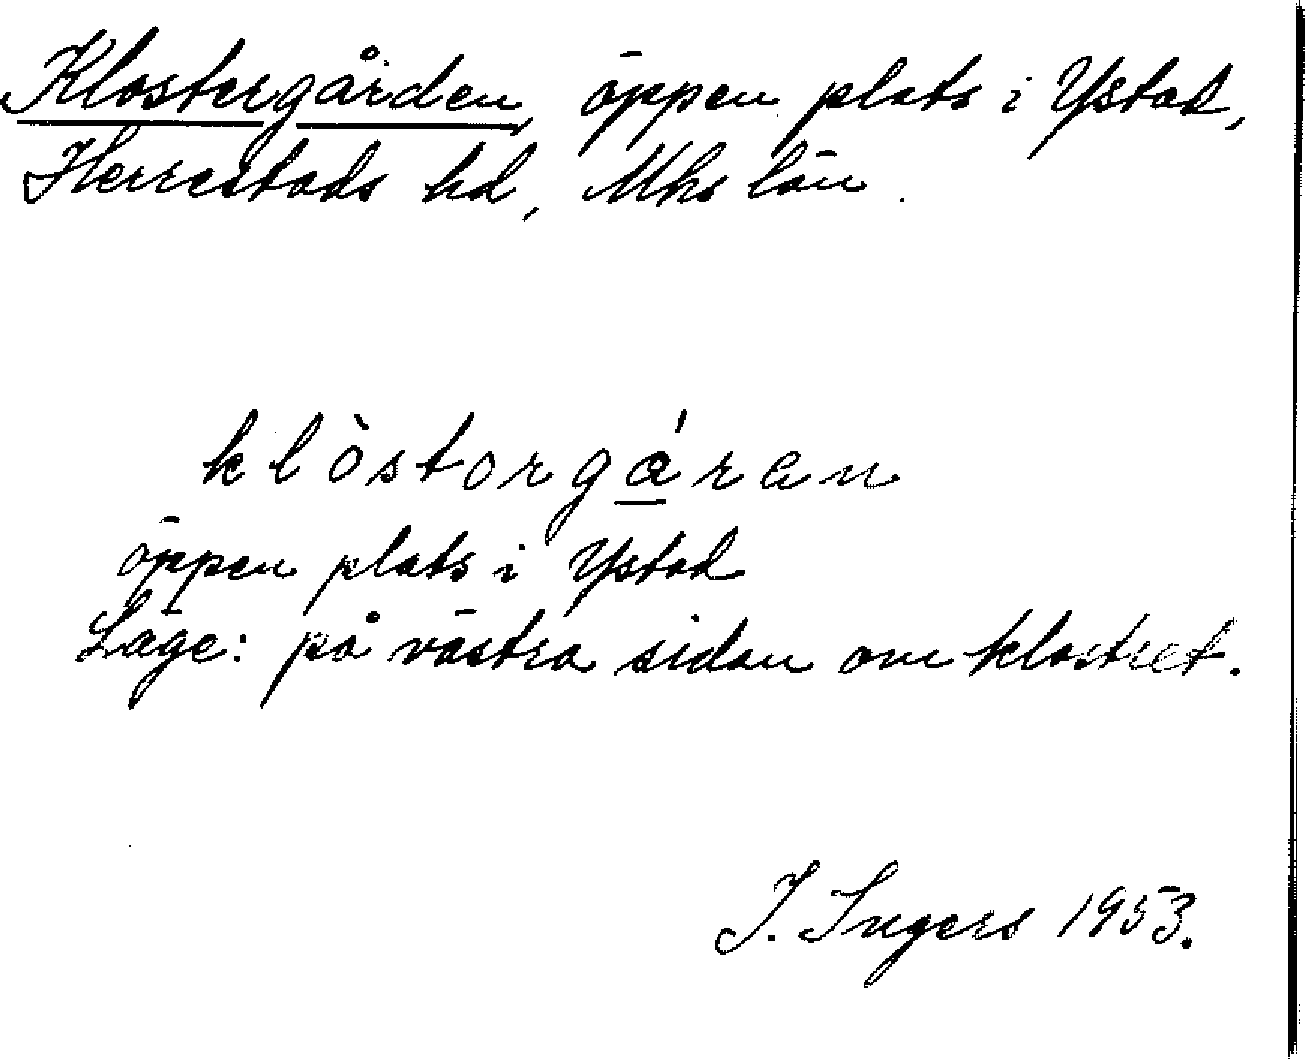 Klostergården, öppen plats i Ystad,
Herrestads hd, Mhs län.
klòstorgá̱ren
öppen plats i Ystad
Läge: på västra sidan om klostret.
I. Ingers 1953.